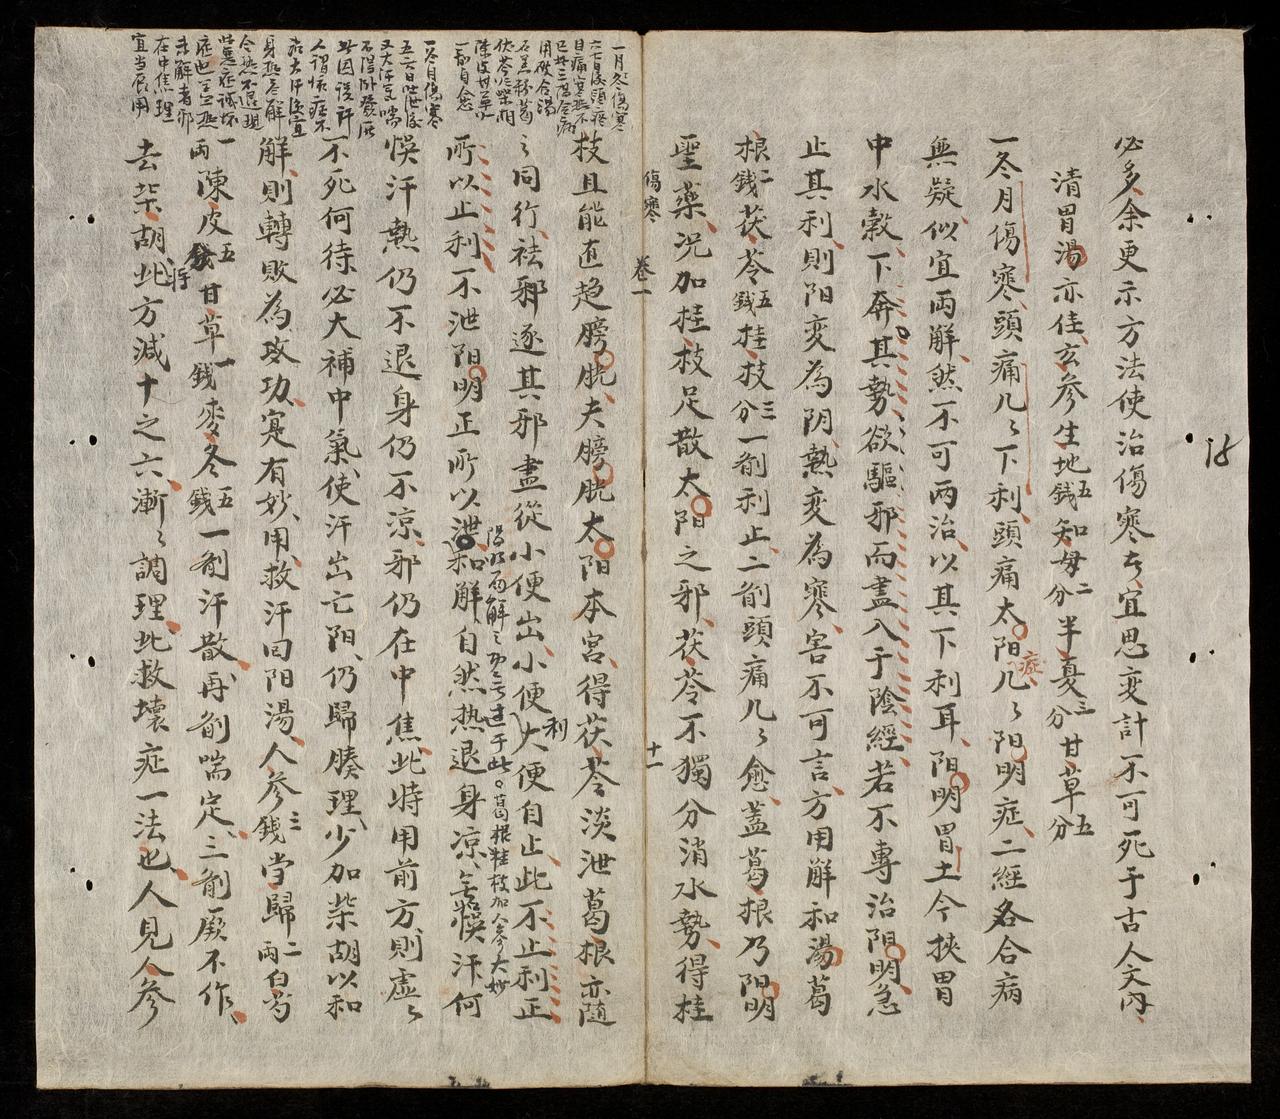 必多余更示方法使治傷寒者宜思变計不可死于古人文内
清胃湯亦佳玄参生地五錢知母二分半夏三分甘草五分
一冬月傷寒頭痛几几下利頭痛太阳症几几阳明症二經各合病
無疑似宜两解然不可两治以其下利耳阳明胃土今挾胃
中水穀下奔其勢欲驅邪而盡入于陰經若不專治阳明急
止其利則阳变為阴熱变為寒害不可言方用解和湯葛
根二錢茯苓五錢桂枝三分一剤利止二剤頭痛几几愈蓋葛根乃阳明
聖藥况加桂枝足散太阳之邪茯苓不獨分消水勢得桂
傷寒 卷一 十一
枝且能直趋膀胱夫膀胱太阳本宮得茯苓淡泄葛根亦随
之同行祛邪逐其邪盡從小便出小便利大便自止此不止利正
所以止利不泄阳明正所以泄和解自然热退身凉無悞汗何
得以两解之功乎
葛根桂枝加人参大妙
悞汗熱仍不退身仍不凉邪仍在中焦此時用前方則虚虚
不死何待必大補中氣使汗出亡阳仍歸腠理少加柴胡以和
解則轉敗為攻功寔有妙用救汗回阳湯人参三錢当歸二两白芍
一两陳皮五錢甘草一錢麥冬五錢一剤汗散再剤喘定三剤厥不作
去柴胡將此方減十之六漸漸調理此救壞症一法也人見人参
一月冬傷寒
六七日後頭疼
目痛寒熱不
已此三陽合病
用破合湯
石羔粉葛
茯苓柴胡
陳皮甘草
一剤自愈
一冬月傷寒
五六日吐泄後
又大汗气喘
不得卧發厥
此因误汗
人謂坏症不
治大汗後宜
身熱尽解
今熱不退現
此悪症誠坏
症也
未解者邪
在中焦理
宜当辰用
18